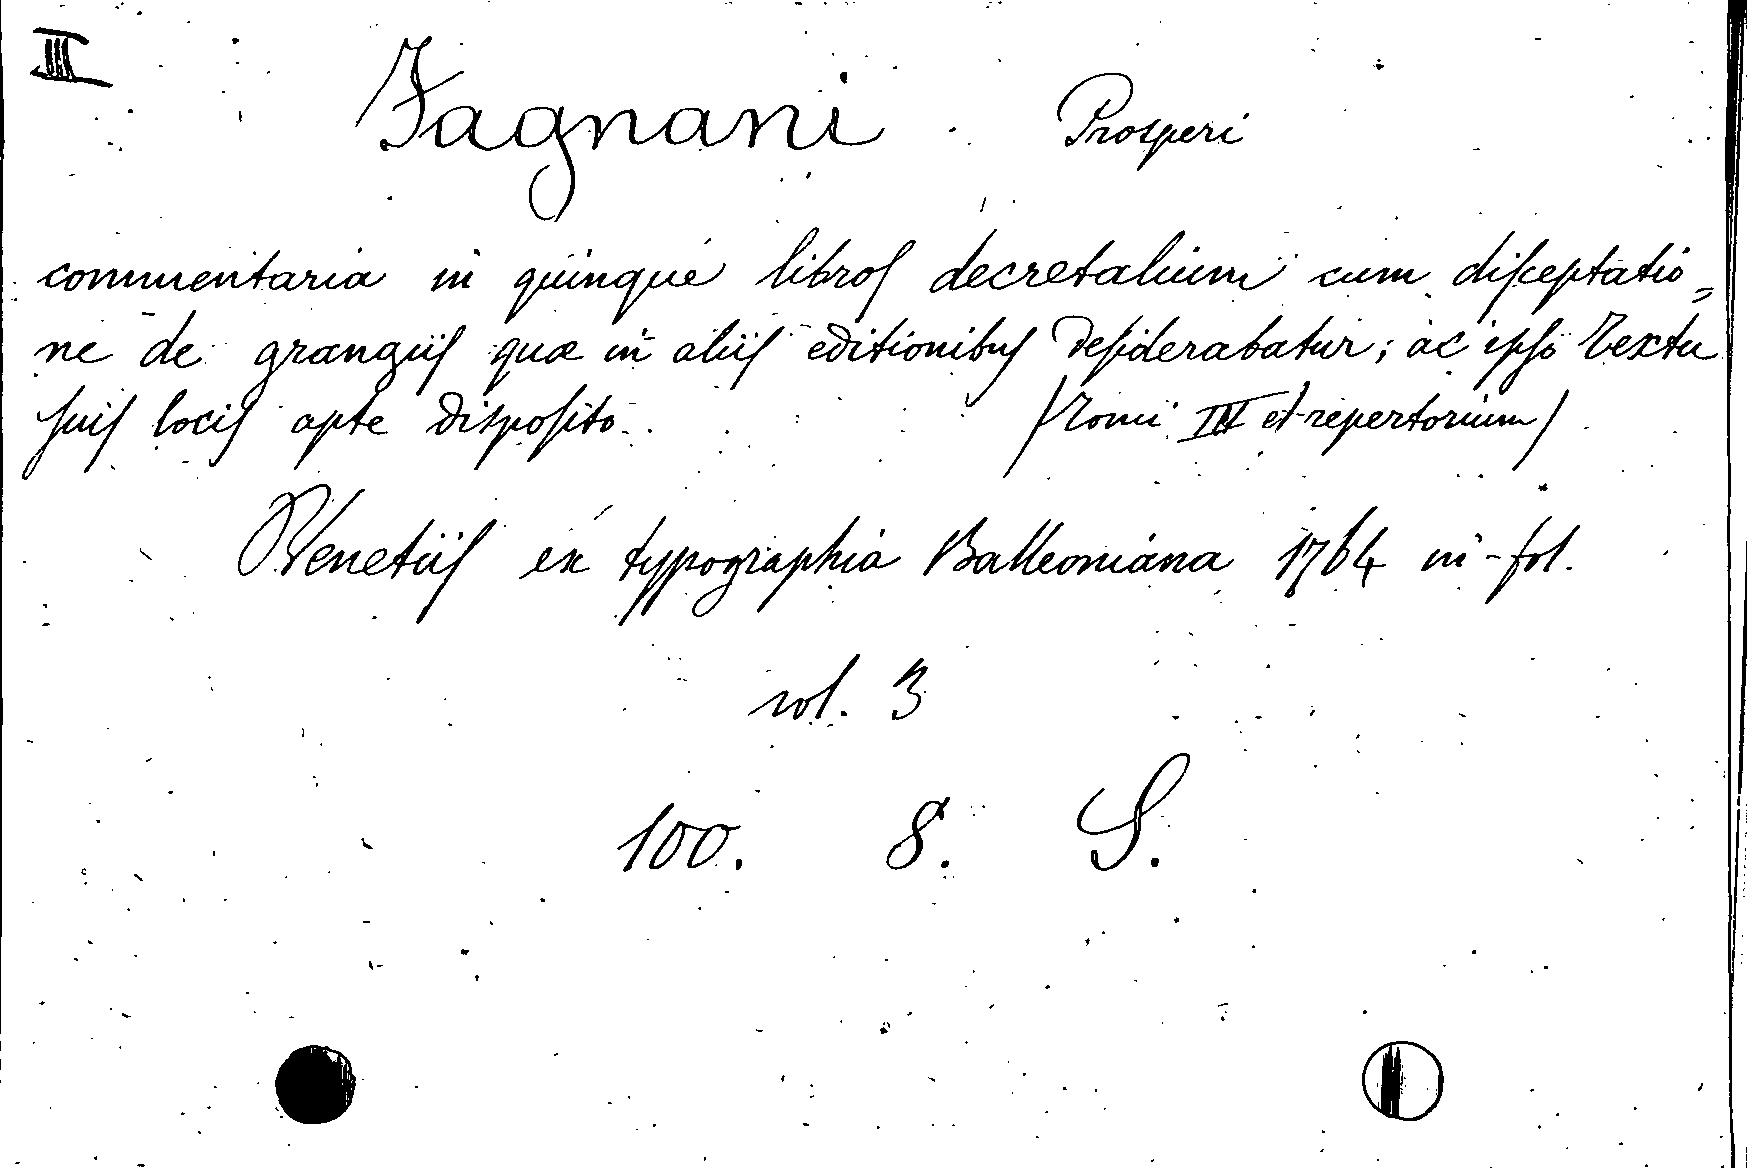 III
Fagnani Prosperi
commentaria in quinque libros decretalium cum disceptatio=
ne de grangiis quæ in aliis editionibus desiderabatur; ac ipso textu
suis locis apte disposito. (Tomi IV et repertorium)
Venetiis ex typographia Balleoniana 1764 in-fol.
vol. 3
100. 8. S.